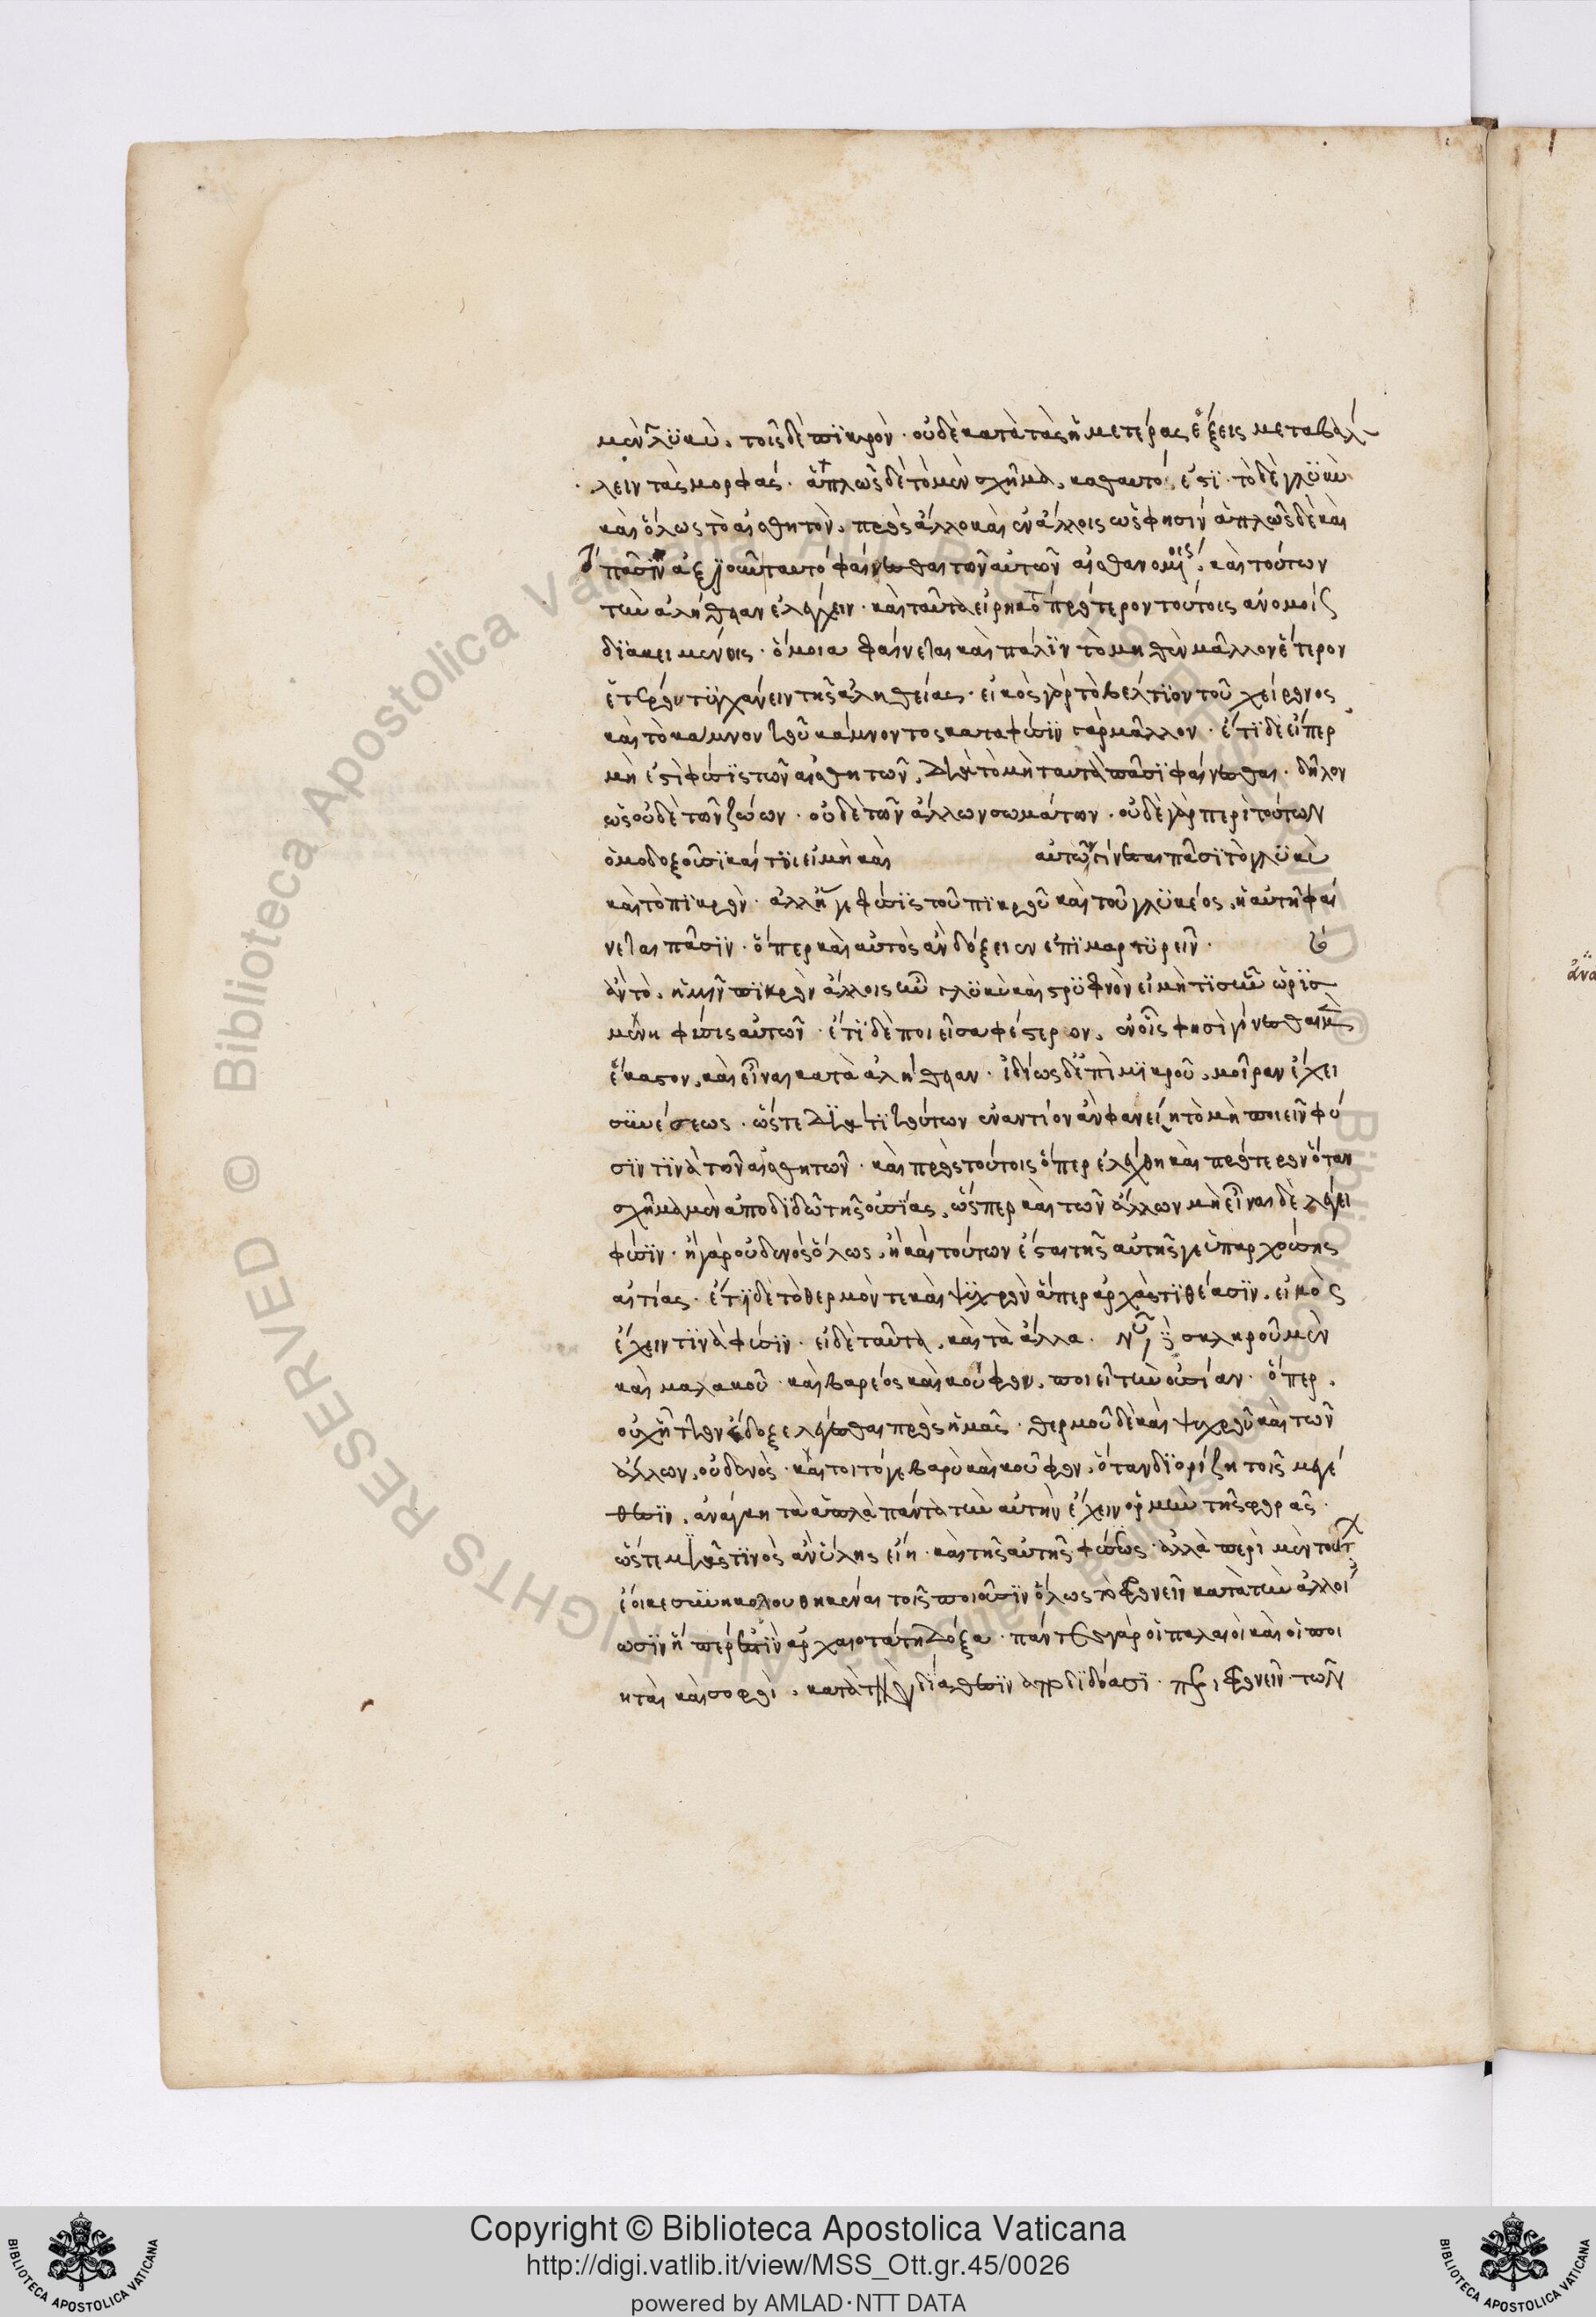 μὲν γλϋκὺ. τοῖς δὲ πϊκρὸν · οὐδὲ κατὰ τὰς ἡμετέρας ἕξεις μεταβάλ
λειν τὰς μορφάς · ἁπλῶς δὲ τὸ μὲν σχῆμα, καθαυτό, ἐστϊ · τὸ δὲ γλϋκὺ
καὶ ὅλως τὸ αἰσθητὸν, πρὸς ἄλλο καὶ ἐν ἄλλοις ὥς φησίν ἁπλῶς δὲ καὶ
πᾶσϊν ἀξϊοῦν ταυτὸ φαίνεσθαι τῶν αὐτῶν αἰσθανομένοις, καὶ τούτων
τὴν ἀλήθειαν ἐλέγχειν · καὶ ταῦτα εἰρηκότ πρότερον τούτοις ἀνομοίως
δϊακειμένοις · ὅμοια φαίνεται καὶ πάλϊν τὸ μηθὲν μᾶλλον ἕτερον
ἑτέρου τϋγχάνειν τῆς ἀληθείας · εἰκὸς γὰρ τὸ βέλτϊον τοῦ χείρονος
καὶ τὸ κάμνον τοῦ κάμνοντος κατα φύσϊν γὰρ μᾶλλον · ἔτϊ δὲ εἴπερ
μὴ ἐστὶ φύσϊς τῶν αἰσθητῶν, διὰ τὸ μὴ ταυτὰ πᾶσϊ φαίνεσθαι · δῆλον
ὡς οὐδὲ τῶν ζώων · οὐδὲ τῶν ἄλλων σωμάτων · οὐδὲ γὰρ περὶ τούτων
ὁμοδοξοῦσϊ καί τϊ εἰ μὴ καὶ αὐτῶν γίνεται πᾶσϊ τὸ γλϋκὺ
καὶ τὸ πϊκρὸν · ἀλλ' ἥ γε φύσϊς τοῦ πϊκροῦ καὶ τοῦ γλϋκέος, ἡ αὐτὴ φαί
νεται πᾶσϊν · ὅπερ καὶ αὐτὸς ἂν δόξειεν ἐπϊμαρτϋρεῖν ·
ἂν τὸ, ἡμῖν πϊκρὸν ἄλλοις ἦν γλϋκὺ καὶ στρϋφνὸν εἰ μή τϊς ἦν ὡρϊσ
μένη φύσις αὐτῶν · ἔτϊ δὲ ποιεῖ σαφέστερον, ἐν οἷς φησὶ γίνεσθαι μὲν
ἕκαστον, καὶ εἶναι κατὰ ἀλήθειαν · ἰδίως δ' ἐπὶ μϊκροῦ, μοῖραν ἔχει
σϋνέσεως · ὥστε διά τϊ τούτων ἐναντίον ἂν φανείη τὸ μὴ ποιεῖν φύ
σϊν τϊνὰ τῶν αἰσθητῶν · καὶ πρὸς τούτοις ὅπερ ἐλέχθη καὶ πρότερον ὅταν
σχῆμα μὲν ἀποδϊδῶ τῆς οὐσίας, ὥσπερ καὶ τῶν ἄλλων μὴ εἶναι δὲ λέγει
φύσϊν · ἢ γὰρ οὐδενός ὅλως, ἢ καὶ τούτων ἔσται τῆς αὐτῆς γε ὑπαρχούσης
αἰτίας · ἔτϊ δὲ τὸ θερμὸν τε καὶ ψϋχρὸν ἅπερ ἀρχὰς τϊθέασϊν, εἰκὸς
ἔχειν τϊνὰ φύσϊν · εἰ δὲ ταῦτα, καὶ τὰ ἄλλα · νῦν δὲ σκληροῦ μὲν
καὶ μαλακοῦ · καὶ βαρέος καὶ κούφου, ποιεῖ τὴν οὐσίαν · ὅπερ,
οὐχ ἧττον ἔδοξε λέγεσθαι πρὸς ἡμᾶς · θερμοῦ δὲ καὶ ψϋχροῦ καὶ τῶν
ἄλλων, οὐδενὸς · καίτοι τό γε βαρὺ καὶ κοῦφον, ὅταν δϊορίζη τοῖς μεγέ
θεσϊν, ἀνάγκη τὰ ἁπλὰ πάντα τὴν αὐτὴν ἔχειν ὁρμὴν τῆς φορᾶς ·
ὥστε μιᾶς τϊνὸς ἂν ὕλης εἴη · καὶ τῆς αὐτῆς φύσεως · ἀλλὰ περὶ μὲν τούτ
ἔοικε σϋνηκολουθηκέναι τοῖς ποιοῦσϊν ὅλως τὸ φρονεῖν κατὰ τὴν ἀλλοί
ωσϊν ἥπερ ἐστὶν ἀρχαιοτάτη δόξα · πάντες γὰρ οἱ παλαιοὶ καὶ οἱ ποι
ηταὶ καὶ σοφοὶ, κατὰ τὴν διάθεσϊν ἀποδϊδόασϊ · περὶ φρονεῖν · τῶν
Copyright © Biblioteca Apostolica Vaticana
http://digi.vatlib.it/view/MSS_Ott.gr.45/0026
powered by AMLAD·NTT DATA